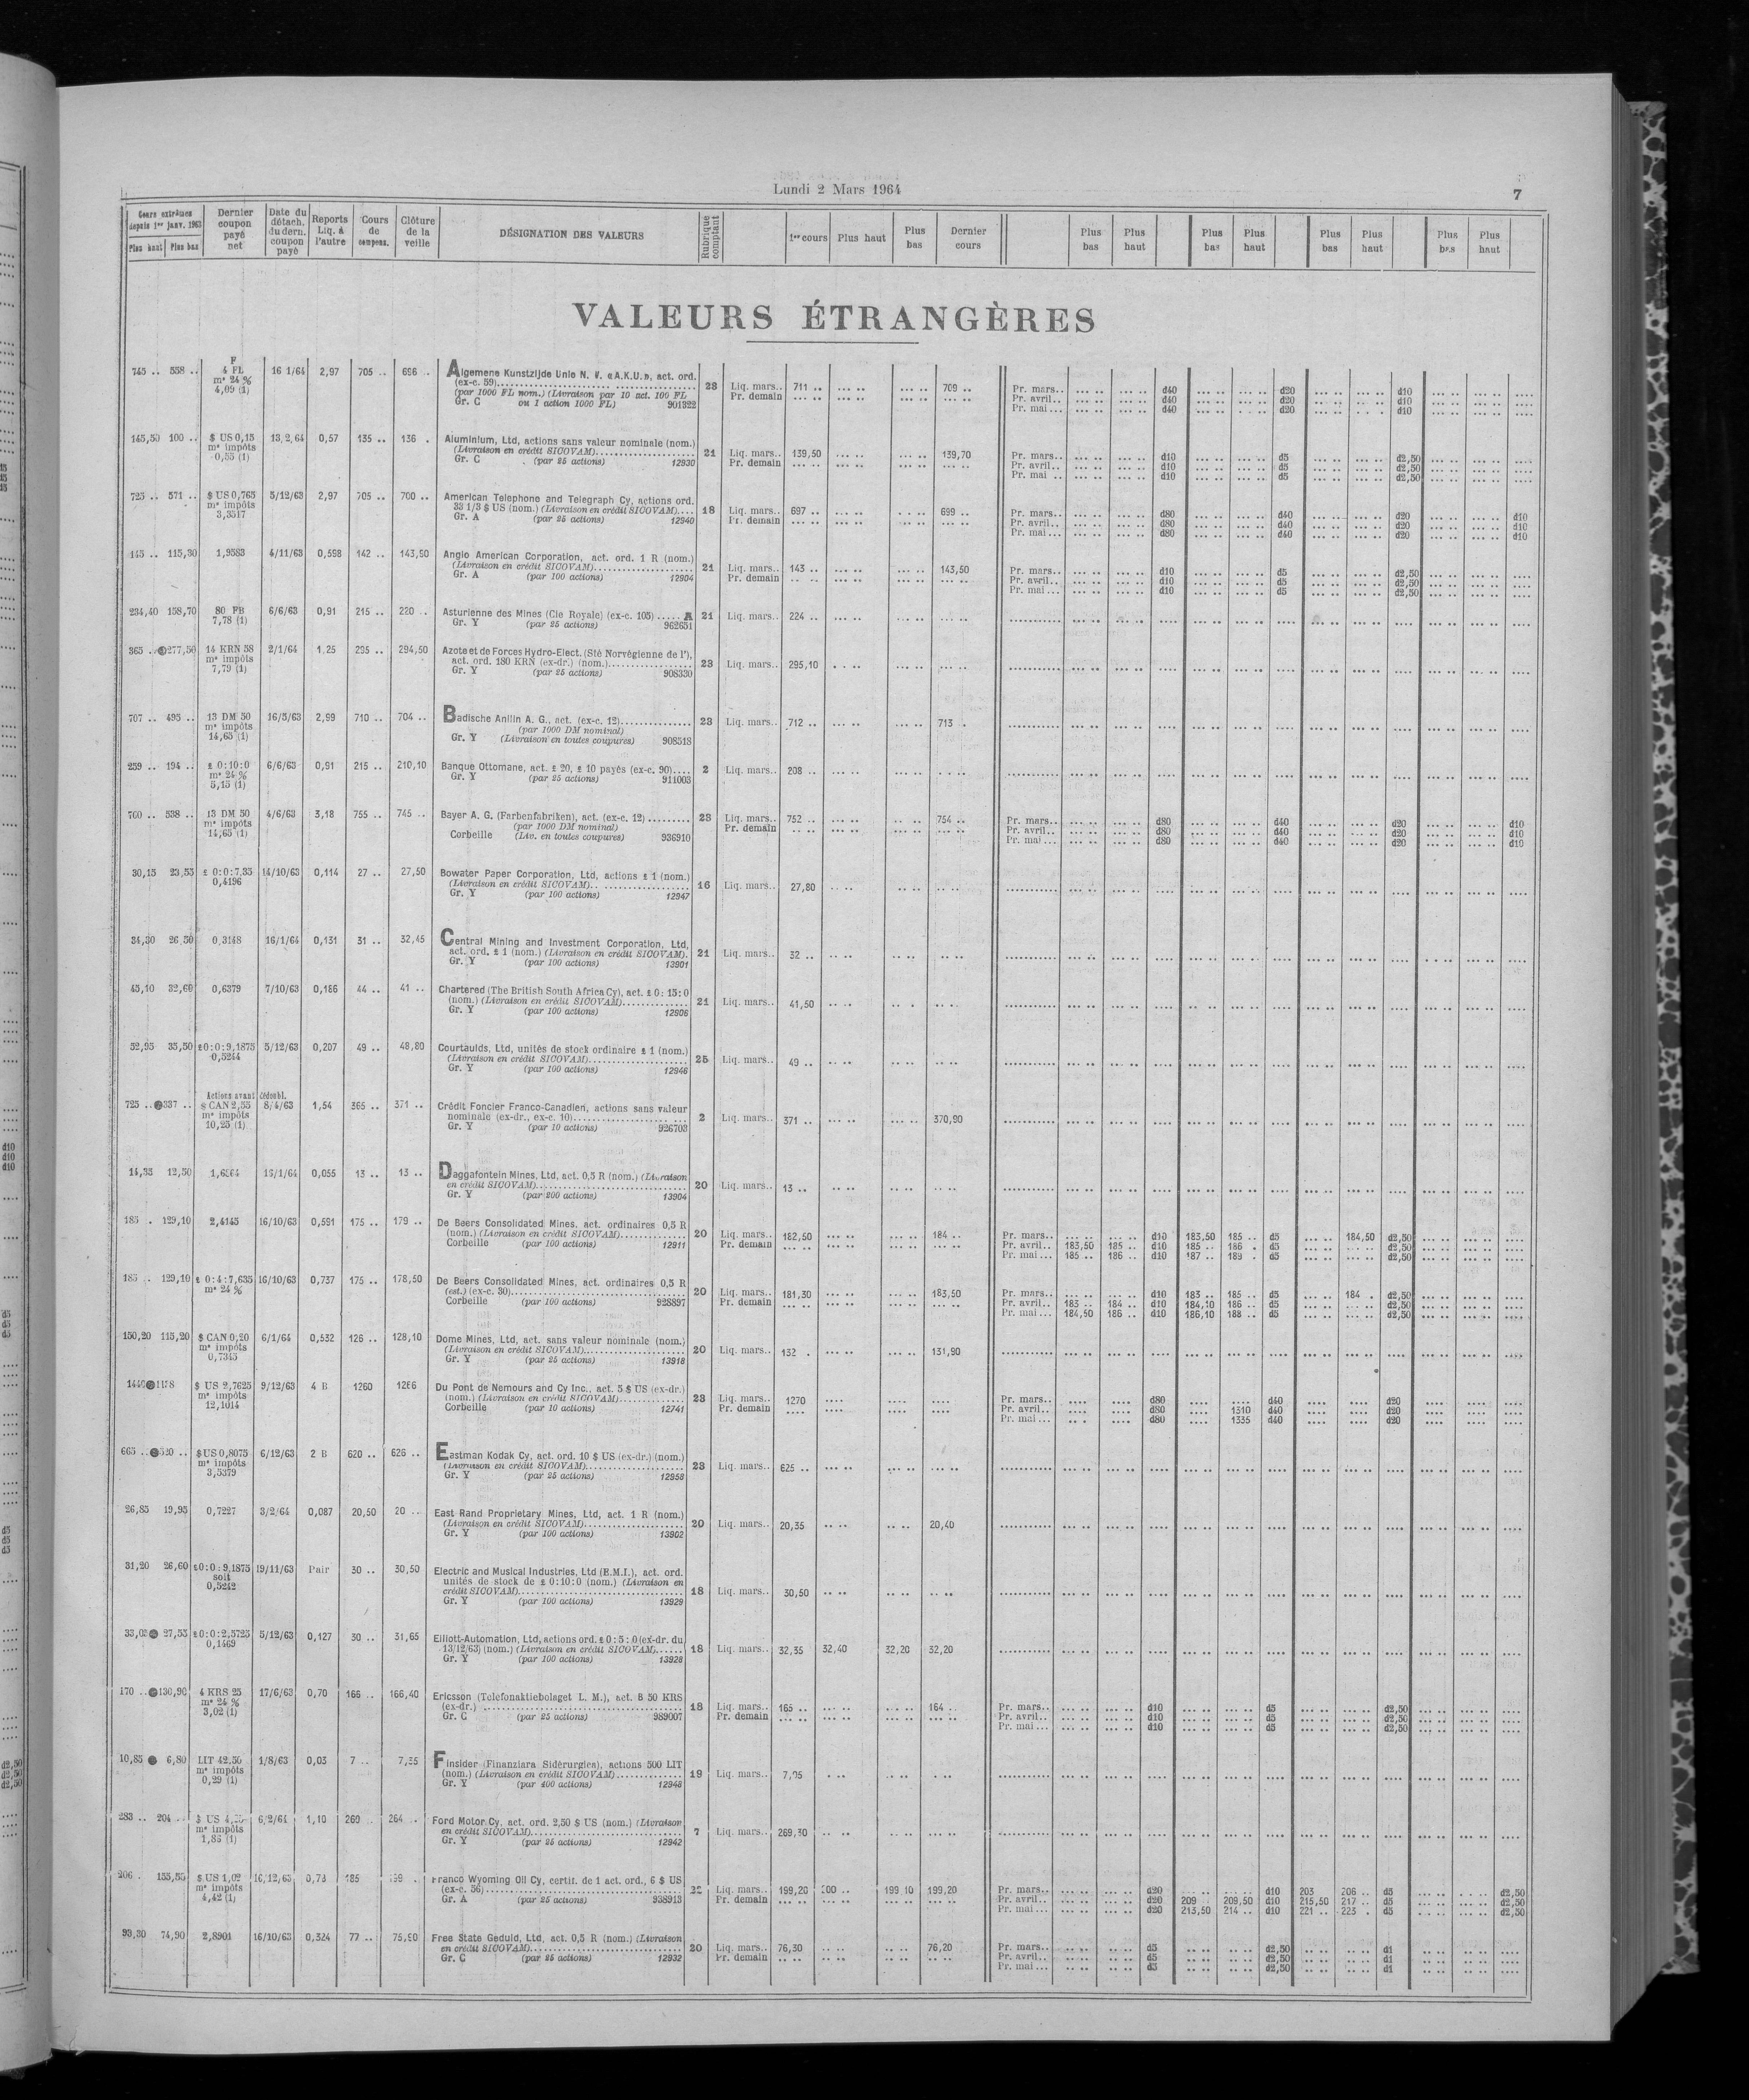 Lundi 2 Mars 1964
7
Cours extrêmes depuis 1er janv. 1963 Plus haut Plus bas | Dernier coupon payé net | Date du détach. du dern. coupon payé | Reports Liq. à l'autre | Cours de compens. | Clôture de la veille | DÉSIGNATION DES VALEURS | Rubrique comptant | 1er cours | Plus haut | Plus bas | Dernier cours | Plus bas | Plus haut | Plus bas | Plus haut | Plus bas | Plus haut | Plus bas | Plus haut
VALEURS ÉTRANGÈRES
F
745 .. 558 .. 4 FL 16 1/64 2,97 705 .. 696 .. Algemene Kunstzijde Unie N. V. «A.K.U.», act. ord.
m* 24 % (ex-c. 59) 23 Liq. mars.. 711 .. 709 .. Pr. mars.. d40 d20 d10
4,09 (1) (par 1000 FL nom.) (Livraison par 10 act. 100 FL Pr. demain Pr. avril.. d40 d20 d10
Gr. C ou 1 action 1000 FL) 901322 Pr. mai ... d40 d20 d10
145,50 100 .. $ US 0,15 13,2,64 0,57 135 .. 136 . Aluminium, Ltd, actions sans valeur nominale (nom.)
m* impôts (Livraison en crédit SICOVAM) 21 Liq. mars.. 139,50 139,70 Pr. mars.. d10 d5 d2,50
0,55 (1) Gr. C (par 25 actions) 12930 Pr. demain Pr. avril.. d10 d5 d2,50
Pr. mai .. d10 d5 d2,50
725 .. 571 .. $ US 0,765 5/12/63 2,97 705 .. 700 .. American Telephone and Telegraph Cy, actions ord.
m* impôts 33 1/3 $ US (nom.) (Livraison en crédit SICOVAM).... 18 Liq. mars.. 697 .. 699 .. Pr. mars.. d80 d40 d20 d10
3,3517 Gr. A (par 25 actions) 12940 Pr. demain Pr. avril.. d80 d40 d20 d10
Pr. mai ... d80 d40 d20 d10
145 .. 115,30 1,9583 4/11/63 0,598 142 .. 143,50 Anglo American Corporation, act. ord. 1 R (nom.)
(Livraison en crédit SICOVAM) 21 Liq. mars.. 143 .. 143,50 Pr. mars.. d10 d5 d2,50
Gr. A (par 100 actions) 12904 Pr. demain Pr. avril.. d10 d5 d2,50
Pr. mai ... d10 d5 d2,50
234,40 158,70 80 FB 6/6/63 0,91 215 .. 220 .. Asturienne des Mines (Cie Royale) (ex-c. 105) ..... A 21 Liq. mars.. 224 ..
7,78 (1) Gr. Y (par 25 actions) 962651
365 .. 277,50 14 KRN 58 2/1/64 1,25 295 .. 294,50 Azote et de Forces Hydro-Elect. (Sté Norvégienne de l'),
m* impôts act. ord. 180 KRN (ex-dr.) (nom.) 23 Liq. mars.. 295,10
7,79 (1) Gr. Y (par 25 actions) 908330
707 .. 495 .. 13 DM 50 16/5/63 2,99 710 .. 704 .. Badische Anilin A. G., act. (ex-c. 12) 23 Liq. mars.. 712 .. 713 .
m* impôts (par 1000 DM nominal)
14,65 (1) Gr. Y (Livraison en toutes coupures) 908518
259 .. 194 .. £ 0:10:0 6/6/63 0,91 215 .. 210,10 Banque Ottomane, act. £ 20, £ 10 payés (ex-c. 90).... 2 Liq. mars.. 208 ..
m* 24 % Gr. Y (par 25 actions) 911003
5,15 (1)
760 .. 538 .. 13 DM 50 4/6/63 3,18 755 .. 745 .. Bayer A. G. (Farbenfabriken), act. (ex-c. 12) 23 Liq. mars.. 752 .. 754 .. Pr. mars.. d80 d40 d20 d10
m* impôts (par 1000 DM nominal) Pr. demain Pr. avril.. d80 d40 d20 d10
14,65 (1) Corbeille (Liv. en toutes coupures) 936910 Pr. mai ... d80 d40 d20 d10
30,15 23,55 £ 0:0:7,35 14/10/63 0,114 27 .. 27,50 Bowater Paper Corporation, Ltd, actions £ 1 (nom.)
0,4196 (Livraison en crédit SICOVAM) 16 Liq. mars.. 27,80
Gr. Y (par 100 actions) 12947
34,30 26,50 0,3148 16/1/64 0,131 31 .. 32,45 Central Mining and Investment Corporation, Ltd,
act. ord. £ 1 (nom.) (Livraison en crédit SICOVAM). 21 Liq. mars.. 32 ..
Gr. Y (par 100 actions) 13901
45,10 32,60 0,6379 7/10/63 0,186 44 .. 41 .. Chartered (The British South Africa Cy), act. £ 0:15:0
(nom.) (Livraison en crédit SICOVAM) 21 Liq. mars.. 41,50
Gr. Y (par 100 actions) 12906
52,95 35,50 £0:0:9,1875 5/12/63 0,207 49 .. 48,80 Courtaulds, Ltd, unités de stock ordinaire £ 1 (nom.)
0,5244 (Livraison en crédit SICOVAM) 25 Liq. mars.. 49 ..
Gr. Y (par 100 actions) 12946
Actions avant dédoubl.
725 .. 337 .. $ CAN 2,55 8/4/63 1,54 365 .. 371 .. Crédit Foncier Franco-Canadien, actions sans valeur
m* impôts nominale (ex-dr., ex-c. 10) 2 Liq. mars.. 371 .. 370,90
10,25 (1) Gr. Y (par 10 actions) 926703
14,35 12,50 16/1/64 0,055 13 .. 13 .. Daggafontein Mines, Ltd, act. 0,5 R (nom.) (Livraison
en crédit SICOVAM) 20 Liq. mars.. 13 ..
Gr. Y (par 200 actions) 13904
185 . 129,10 2,4145 16/10/63 0,591 175 .. 179 .. De Beers Consolidated Mines, act. ordinaires 0,5 R
(nom.) (Livraison en crédit SICOVAM) 20 Liq. mars.. 182,50 184 .. Pr. mars.. d10 183,50 185 .. d5 184,50 d2,50
Corbeille (par 100 actions) 12911 Pr. demain Pr. avril.. 183,50 185 .. d10 185 .. 186 . d5 d2,50
Pr. mai ... 185 .. 186 .. d10 187 .. 189 . d5 d2,50
185 .. 129,10 £ 0:4:7,635 16/10/63 0,737 175 .. 178,50 De Beers Consolidated Mines, act. ordinaires 0,5 R
m* 24 % (est.) (ex-c. 30) 20 Liq. mars.. 181,30 183,50 Pr. mars.. d10 183 .. 185 .. d5 184 . d2,50
Corbeille (par 100 actions) 928897 Pr. demain Pr. avril.. 183 .. 184 .. d10 184,10 186 .. d5 d2,50
Pr. mai ... 184,50 186 .. d10 186,10 188 .. d5 d2,50
150,20 115,20 $ CAN 0,20 6/1/64 0,532 126 .. 128,10 Dome Mines, Ltd, act. sans valeur nominale (nom.)
m* impôts (Livraison en crédit SICOVAM) 20 Liq. mars.. 132 . 131,90
0,7345 Gr. Y (par 25 actions) 13918
1440 1178 $ US 2,7625 9/12/63 4 B 1260 1266 Du Pont de Nemours and Cy Inc., act. 5 $ US (ex-dr.)
m* impôts (nom.) (Livraison en crédit SICOVAM) 23 Liq. mars.. 1270 Pr. mars.. d80 d40 d20
12,1014 Corbeille (par 10 actions) 12741 Pr. demain Pr. avril.. d80 1310 d40 d20
Pr. mai ... d80 1335 d40 d20
665 .. 520 .. $ US 0,8075 6/12/63 2 B 620 .. 626 .. Eastman Kodak Cy, act. ord. 10 $ US (ex-dr.) (nom.)
m* impôts (Livraison en crédit SICOVAM) 23 Liq. mars.. 625 ..
3,5379 Gr. Y (par 25 actions) 12958
26,85 19,95 0,7227 3/2/64 0,087 20,50 20 .. East Rand Proprietary Mines, Ltd, act. 1 R (nom.)
(Livraison en crédit SICOVAM) 20 Liq. mars.. 20,35 20,40
Gr. Y (par 100 actions) 13902
31,20 26,60 £0:0:9,1875 19/11/63 Pair 30 .. 30,50 Electric and Musical Industries, Ltd (E.M.I.), act. ord.
soit unités de stock de £ 0:10:0 (nom.) (Livraison en
0,5242 crédit SICOVAM) 18 Liq. mars.. 30,50
Gr. Y (par 100 actions) 13929
33,05 27,55 £0:0:2,5725 5/12/63 0,127 30 .. 31,65 Elliott-Automation, Ltd, actions ord. £ 0:5:0 (ex-dr. du
0,1469 13/12/63) (nom.) (Livraison en crédit SICOVAM) 18 Liq. mars.. 32,35 32,40 32,20 32,20
Gr. Y (par 100 actions) 13928
170 .. 130,90 4 KRS 25 17/6/63 0,70 166 .. 166,40 Ericsson (Telefonaktiebolaget L. M.), act. B 50 KRS
m* 24 % (ex-dr.) 18 Liq. mars.. 165 .. 164 .. Pr. mars.. d10 d5 d2,50
3,02 (1) Gr. C (par 25 actions) 989007 Pr. demain Pr. avril.. d10 d5 d2,50
Pr. mai ... d10 d5 d2,50
10,85 6,80 LIT 42,50 1/8/63 0,03 7 .. 7,35 Finsider (Finanziara Sidérurgica), actions 500 LIT
m* impôts (nom.) (Livraison en crédit SICOVAM) 19 Liq. mars..
0,29 (1) Gr. Y (par 400 actions) 12948
283 .. 204 .. $ US 6/2/64 1,10 269 .. 264 .. Ford Motor Cy, act. ord. 2,50 $ US (nom.) (Livraison
m* impôts en crédit SICOVAM) 7 Liq. mars.. 269,30
1,86 (1) Gr. Y (par 25 actions) 12942
206 . 155,55 $ US 1,02 16/12/63 0,73 185 Franco Wyoming Oil Cy, certif. de 1 act. ord., 6 $ US
m* impôts (ex-c. 56) Liq. mars.. 199,20 200 .. 199 10 199,20 Pr. mars.. d20 d10 203 206 .. d5 d2,50
4,42 (1) Gr. A (par 25 actions) 938913 Pr. demain Pr. avril.. d20 209 209,50 d10 215,50 217 .. d5 d2,50
Pr. mai ... d20 213,50 214 .. d10 221 .. 223 . d5 d2,50
93,30 74,90 2,8901 16/10/63 0,324 77 .. 75,90 Free State Geduld, Ltd, act. 0,5 R (nom.) (Livraison
en crédit SICOVAM) 20 Liq. mars.. 76,30 76,20 Pr. mars.. d5 d2,50 d1
Gr. C (par 25 actions) 12932 Pr. demain Pr. avril.. d5 d2,50 d1
Pr. mai ... d5 d2,50 d1